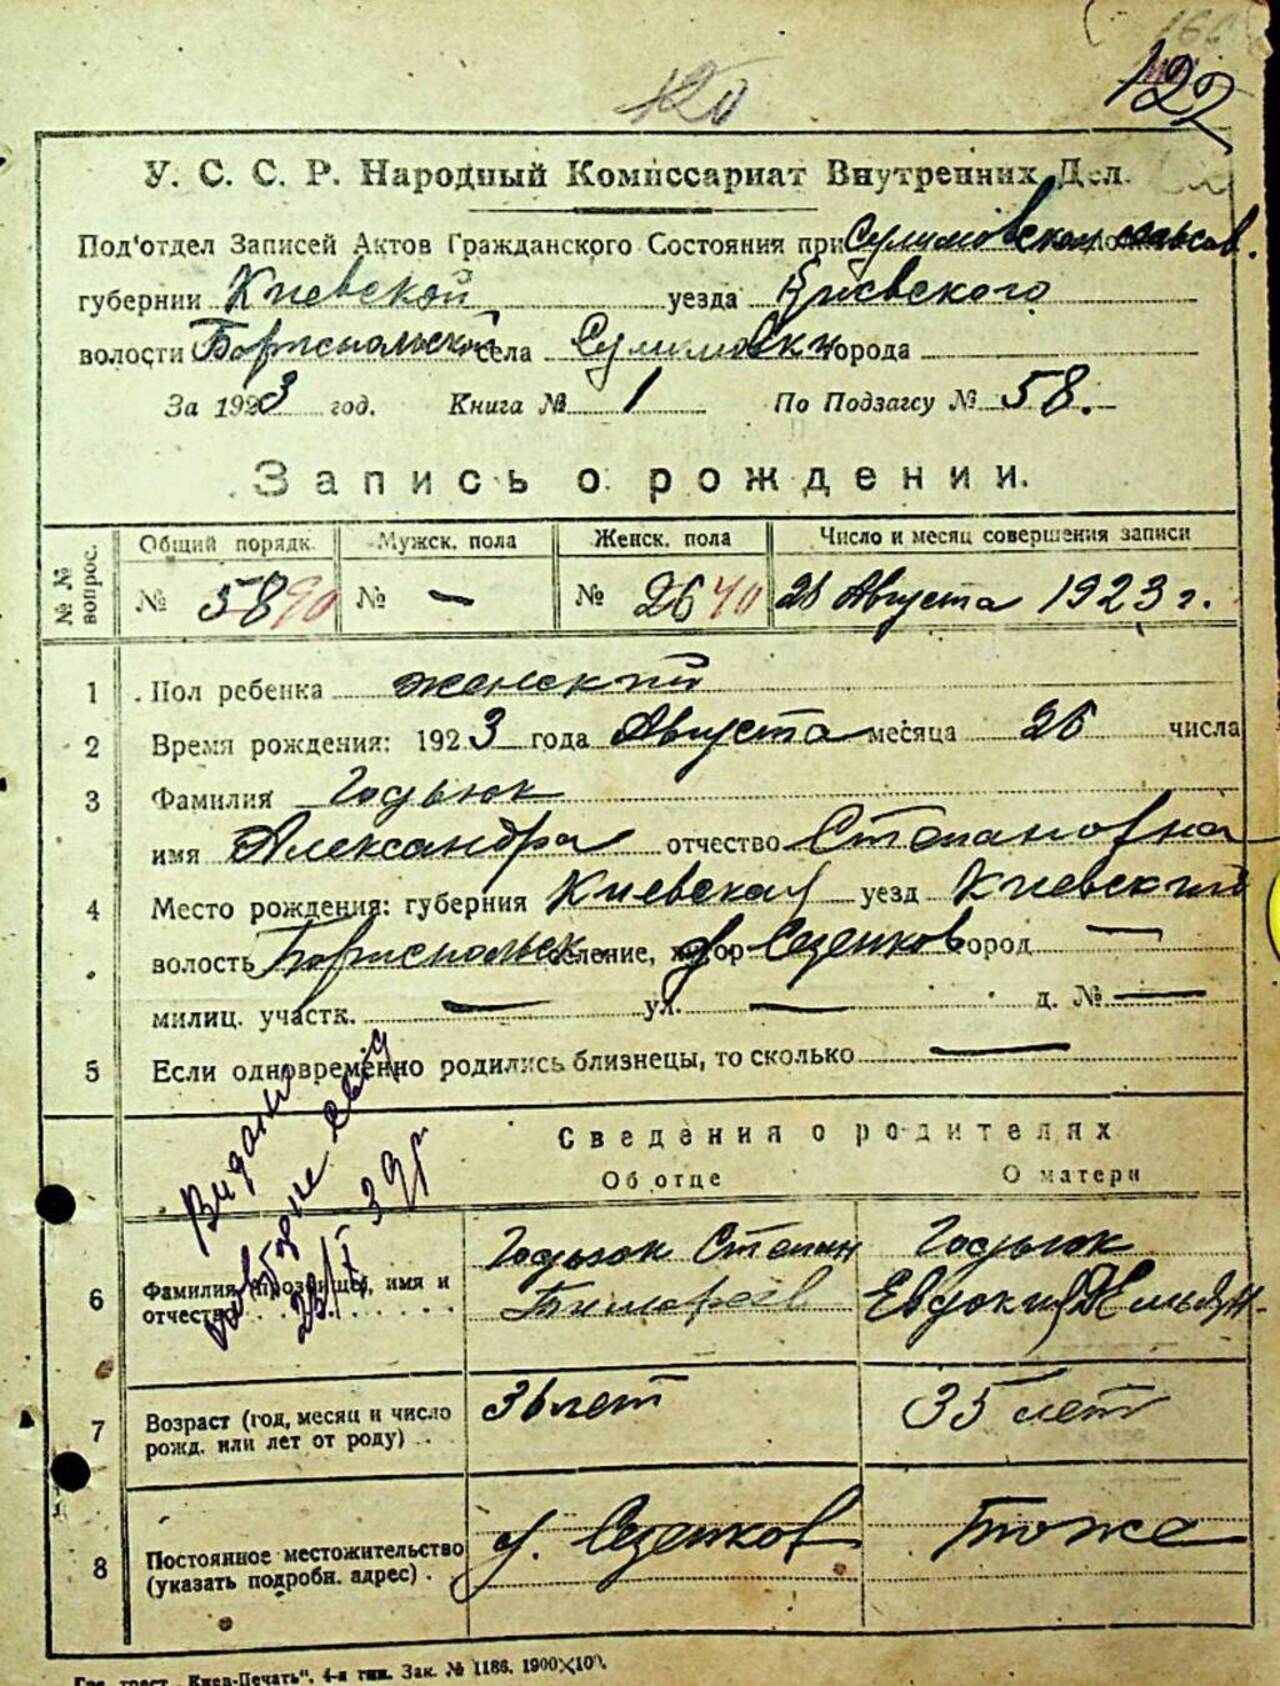 120
122
У. С. С. Р. Народный Комиссариат Внутренних Дел.
Под'отдел Записей Актов Гражданского Состояния при Сулимовском сельсов.
губернии Киевской уезда Киевского
волости Бориспольской села Сулимовки города
За 1923 год. Книга № 1 По Подзагсу № 58.
Запись о рождении.
№ № вопрос. Общий порядк. Мужск. пола Женск. пола Число и месяц совершения записи
№ 58 90 № — № 26 40 28 Августа 1923 г.
1 Пол ребенка женский
2 Время рождения: 1923 года Августа месяца 26 числа
3 Фамилия Годьюк
имя Александра отчество Степановна
4 Место рождения: губерния Киевская уезд Киевский
волость Бориспольск. селение, хутор Сезенков город —
милиц. участк. — ул. — д. № —
5 Если одновременно родились близнецы, то сколько —
Сведения о родителях
Об отце О матери
Видано
25/X 39 р
6 Фамилия (прозвище), имя и отчество Годьюк Степан Годьюк
Евдокия Емельян.
7 Возраст (год, месяц и число рожд. или лет от роду) 36 лет 35 лет
8 Постоянное местожительство (указать подробн. адрес) х. Сезенков тоже
Гос. трест „Киев-Печать“. 4-я тип. Зак. № 1186. 1900×100.